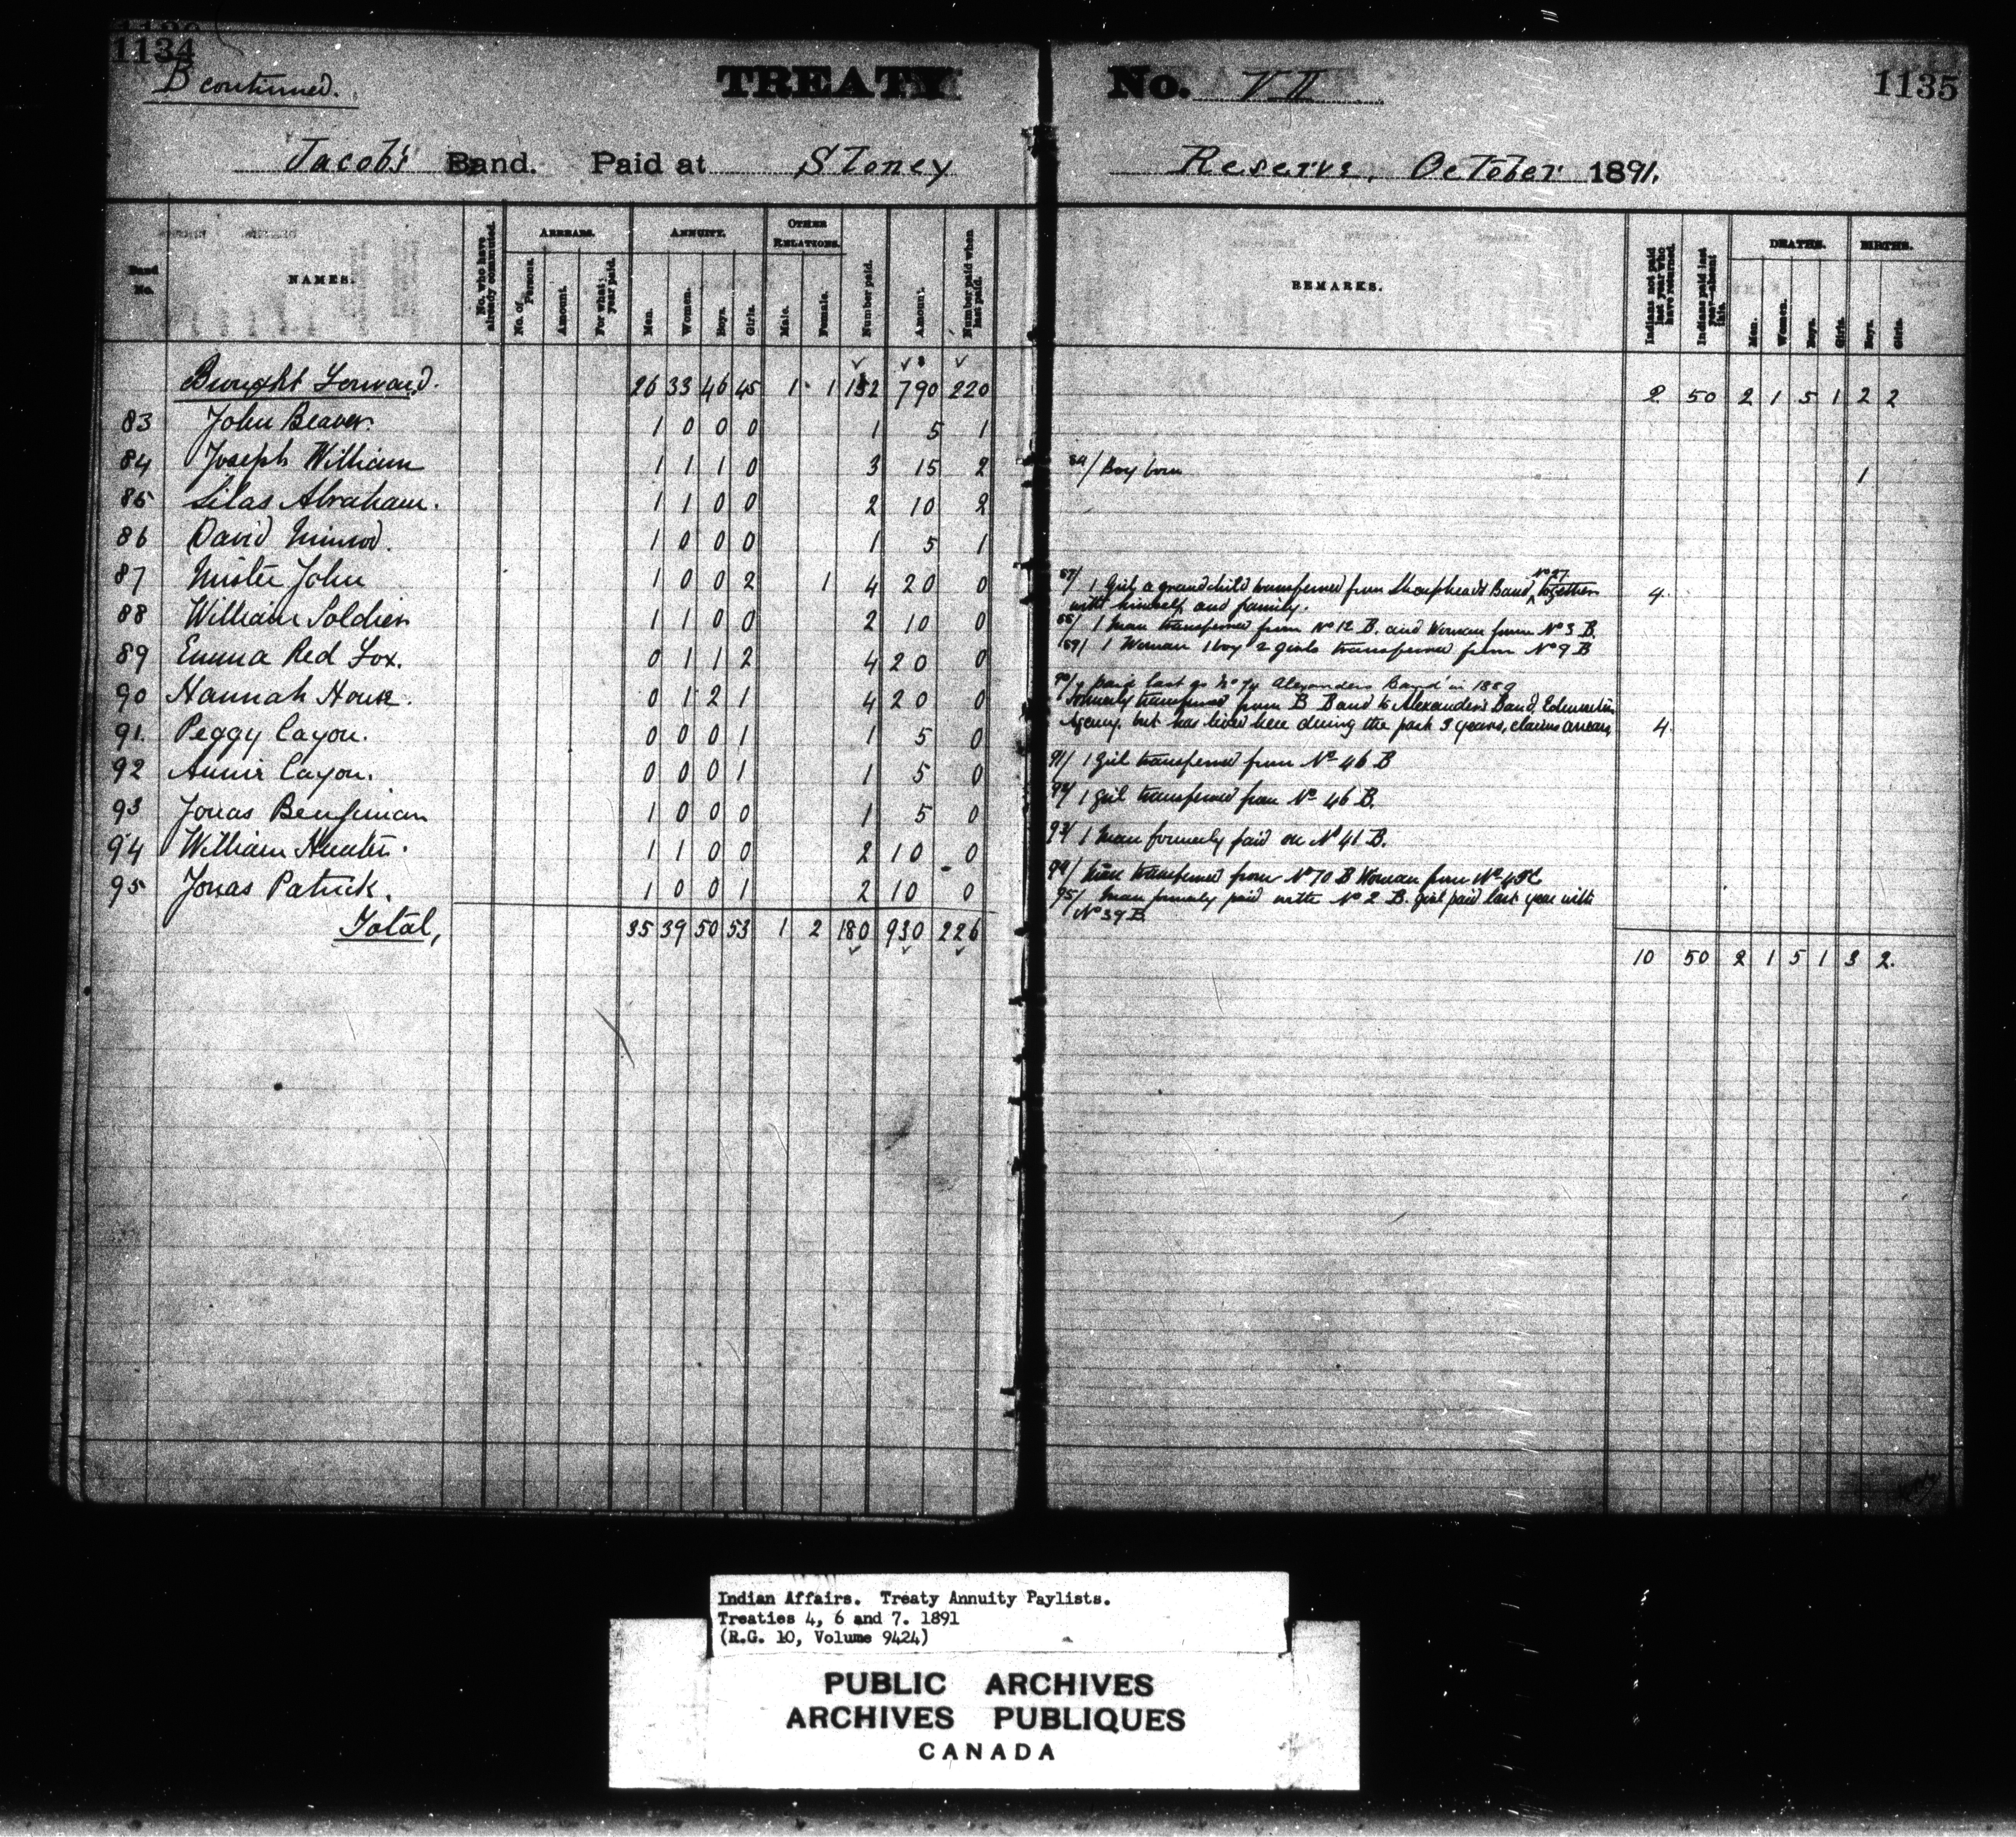 1134
B continued.
TREATY No. VII
1135
Jacob's Band. Paid at Stoney Reserve, October 1891.
Band No.
NAMES.
No. who have already commuted.
ARREARS.
No. of Persons.
Amount.
For what year paid.
ANNUITY.
Men.
Women.
Boys.
Girls.
OTHER RELATIONS.
Male.
Female.
Number paid.
Amount.
Number paid when last paid.
REMARKS.
Indians not paid last year who have returned.
Indians paid last year—absent this.
DEATHS.
Men.
Women.
Boys.
Girls.
BIRTHS.
Boys.
Girls.
Brought Forward. 26 33 46 45 1 1 152 790 220 2 50 2 1 5 1 2 2
83 John Beaver. 1 0 0 0 1 5 1
84 Joseph William 1 1 1 0 3 15 2 84/ Boy born 1
85 Silas Abraham. 1 1 0 0 2 10 2
86 David Nimrod. 1 0 0 0 1 5 1
87 Mister John 1 0 0 2 1 4 20 0 87/ 1 Girl, a grandchild transferred from Sharphead's Band, No 27 together 4
with himself and family.
88 William Soldier 1 1 0 0 2 10 0 88/ 1 Man transferred from No 12 B. and Woman from No 3 B.
89 Emma Red Fox. 0 1 1 2 4 20 0 89/ 1 Woman 1 boy 2 girls transferred from No 9 B
90 Hannah House. 0 1 2 1 4 20 0 90/ paid last as No 74 Alexanders Band in 1889
formerly transferred from B Band to Alexander's Band, Edmonton
Agency. but has lived here during the past 3 years, claims arrears 4
91. Peggy Cayou. 0 0 0 1 1 5 0 91/ 1 girl transferred from No 46 B
92 Annie Cayou. 0 0 0 1 1 5 0 92/ 1 girl transferred from No 46 B.
93 Jonas Benjiman 1 0 0 0 1 5 0 93/ 1 Man formerly paid on No 41 B.
94 William Hunter. 1 1 0 0 2 10 0 94/ Man transferred from No 70 B Woman from No
95 Jonas Patrick. 1 0 0 1 2 10 0 95/ Man formerly paid with No 2 B. girl paid last year with
No 39 B.
Total, 35 39 50 53 1 2 180 930 226 10 50 2 1 5 1 3 2.
Indian Affairs. Treaty Annuity Paylists.
Treaties 4, 6 and 7. 1891
(R.G. 10, Volume 9424)
PUBLIC ARCHIVES
ARCHIVES PUBLIQUES
CANADA